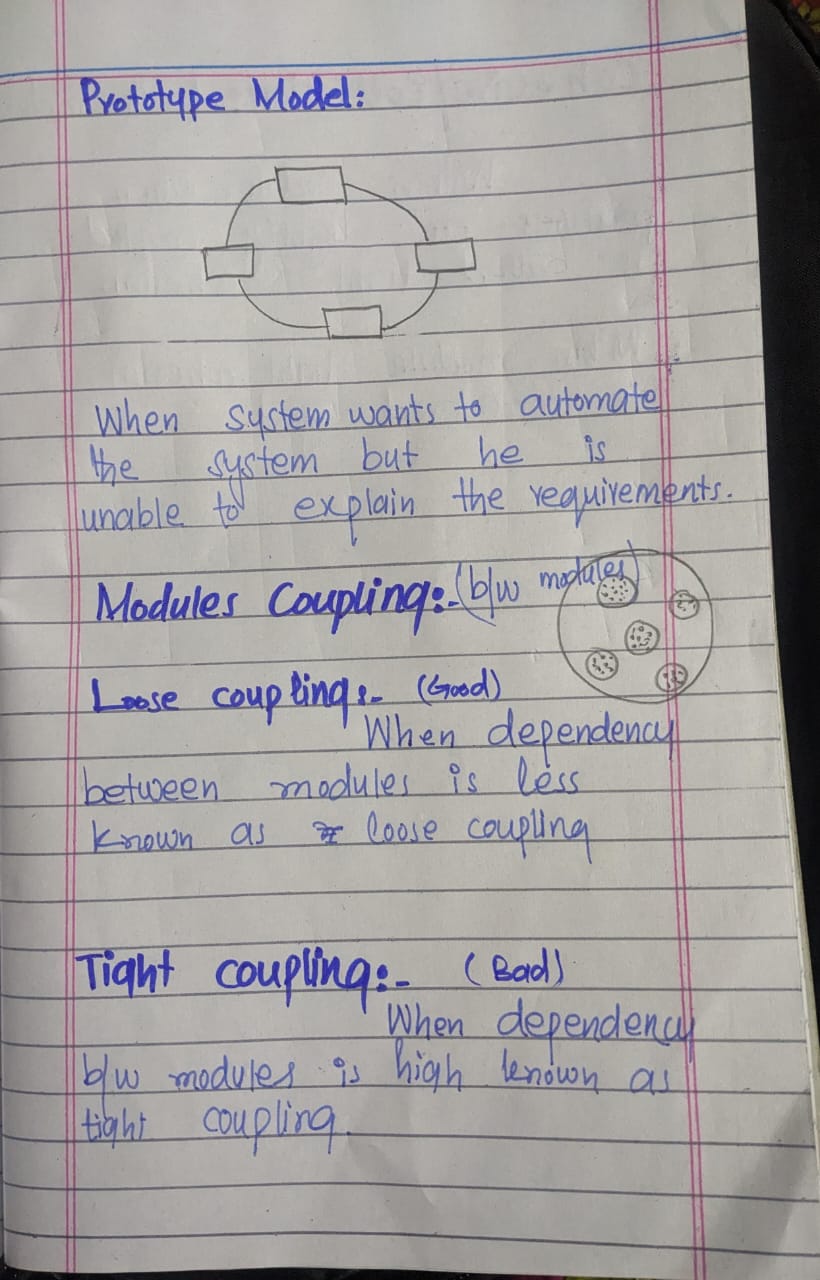 Prototype Model:
When system wants to automate
the system but he is
unable to explain the requirements.
Modules Coupling:- (b/w modules)
Loose coupling:- (Good)
When dependency
between modules is less
known as loose coupling
Tight coupling:- (Bad)
When dependency
b/w modules is high known as
tight coupling.